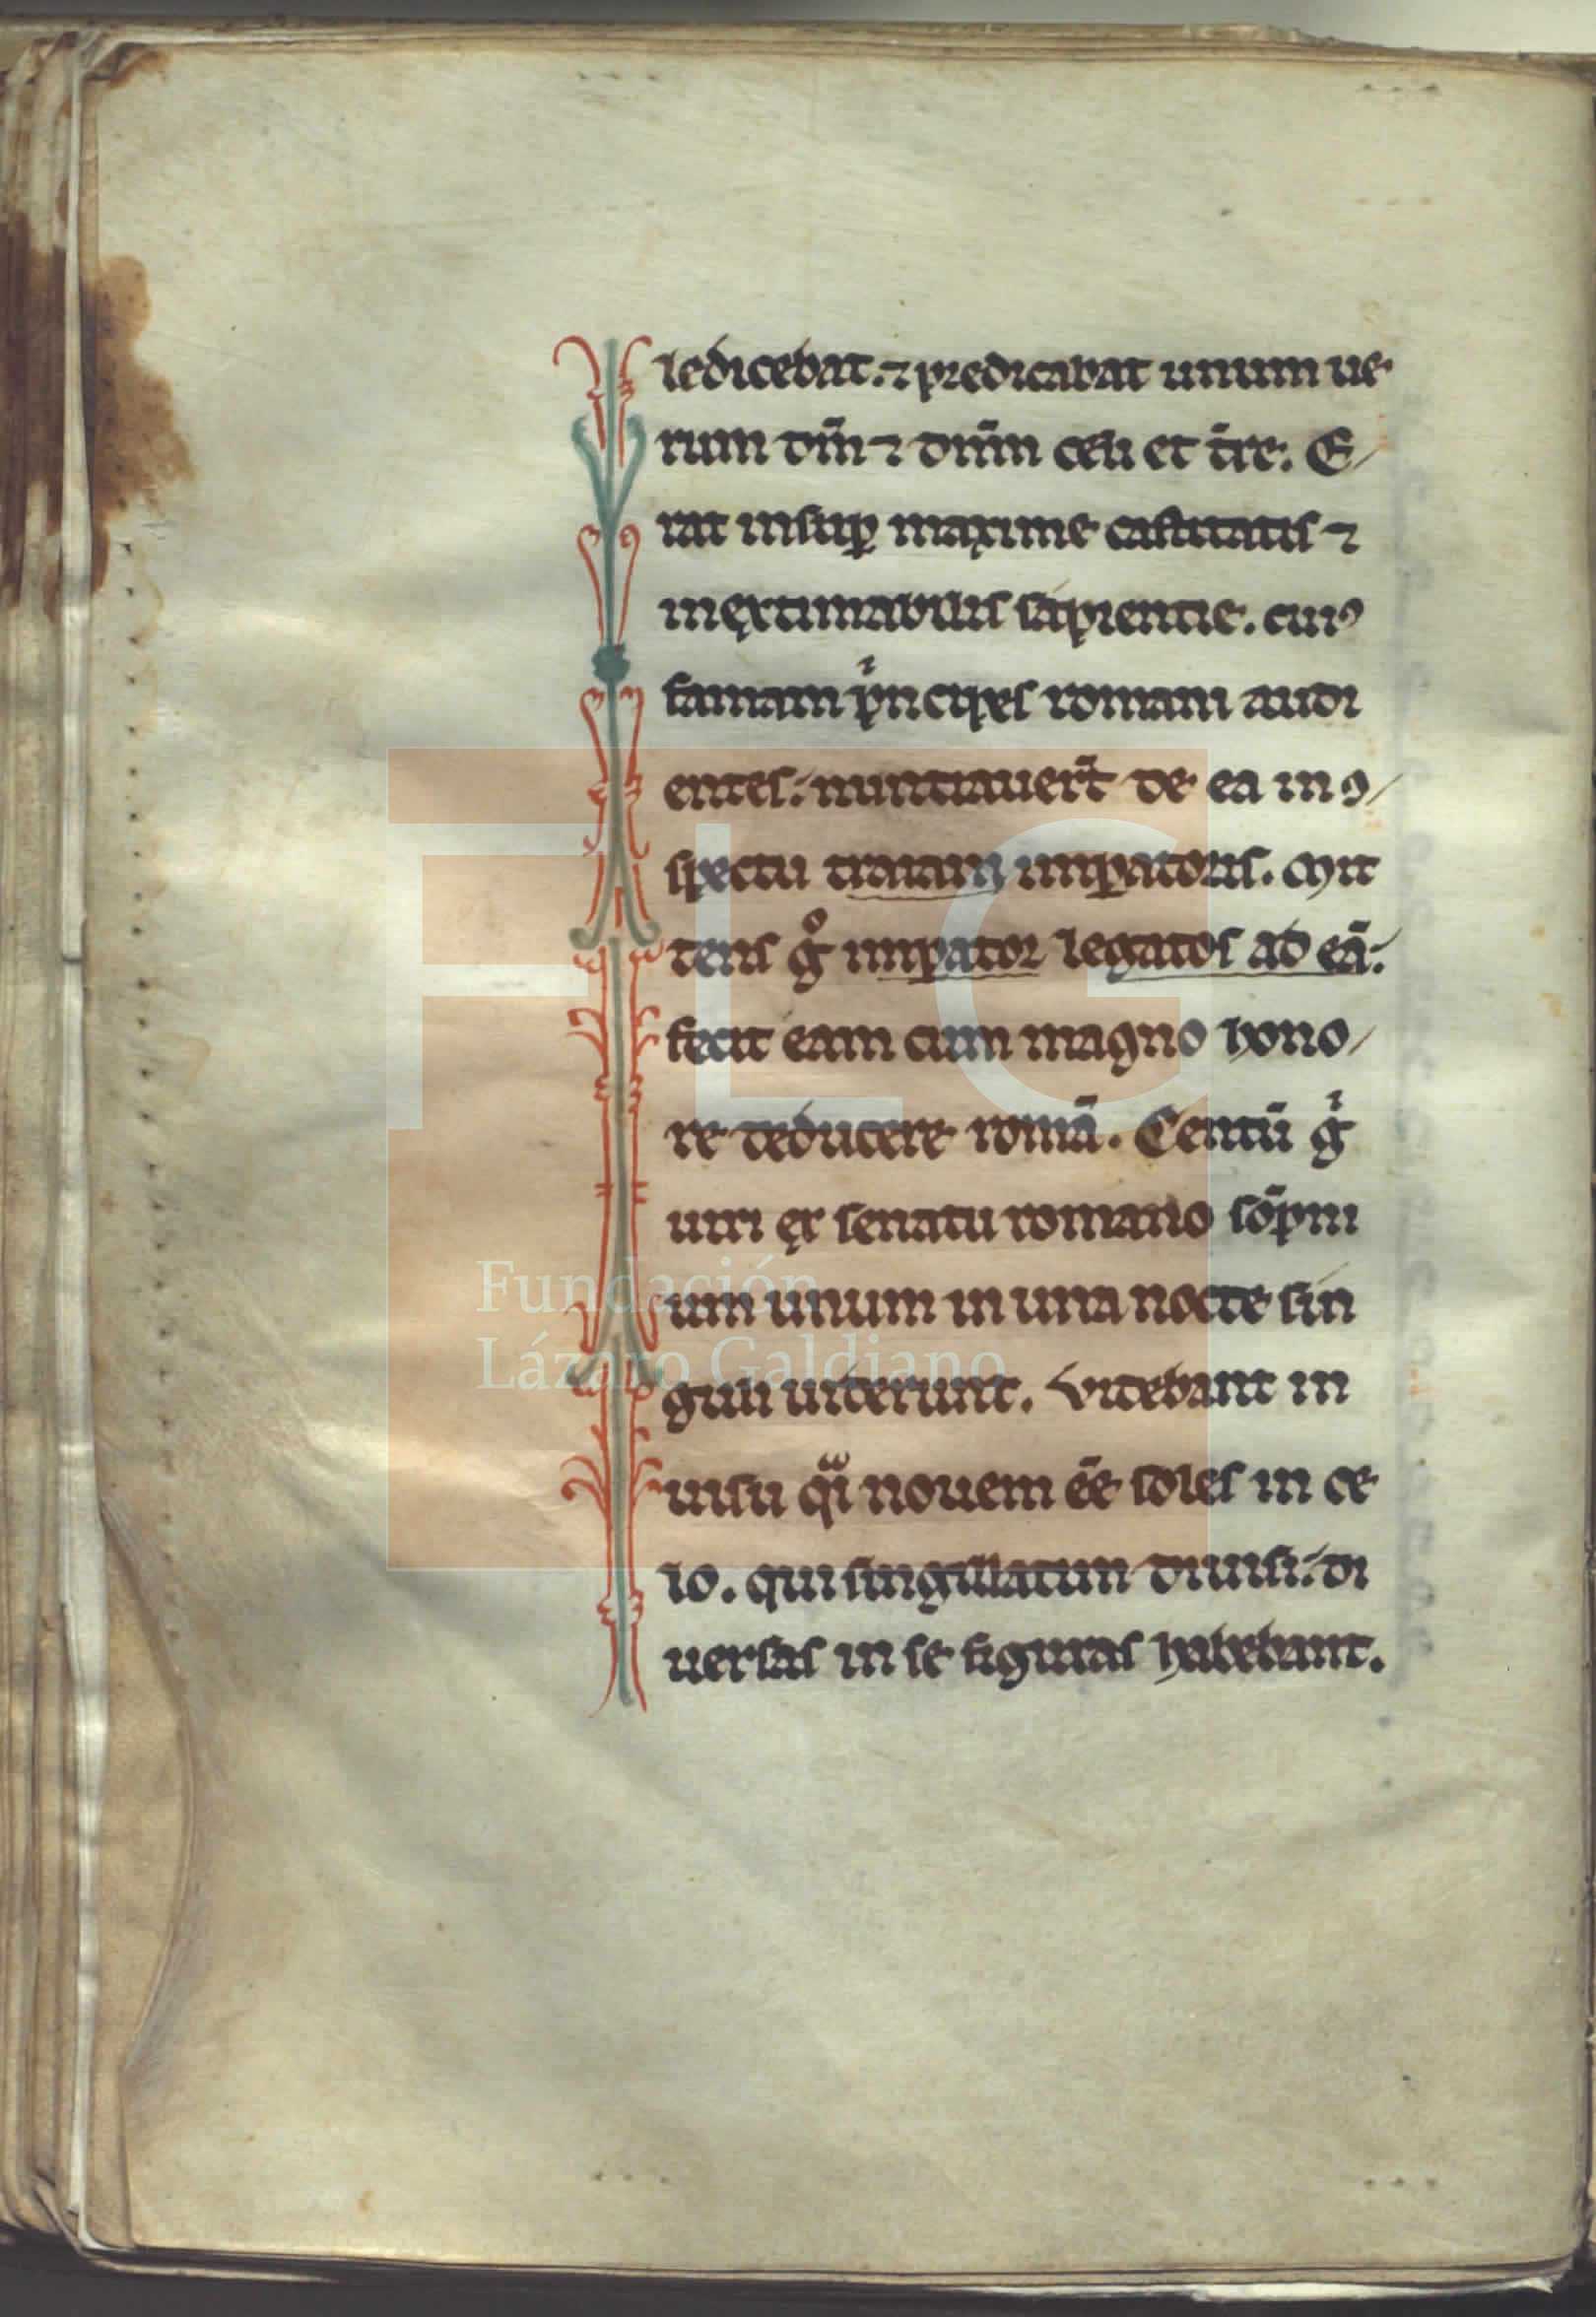 ledicebat. ⁊ predicabat unum ue
rum dm̄ ⁊ dnm̄ celi et t̄re. E/
rat insup̱ maxime castitatis ⁊
inextimabilis sapientie. cuiꝰ
famam pͥncipes romani audi
entes: nuntiauer̄t de ea in ꝯ/
spectu traiani imꝑatoris. Mit
tens gͦ imꝑator legatos ad eā:
fecit eam cum magno hono/
re deducere romā. Centū gͥ
uiri ex senatu romano sōpni
um unum in una nocte sin
guli uiderunt. Videbant in
uisu qͣi nouem eē soles in ce
lo. qui singillatim diuisi: di
uersas in se figuras habebant.
FLG
Fundación
Lázaro Galdiano